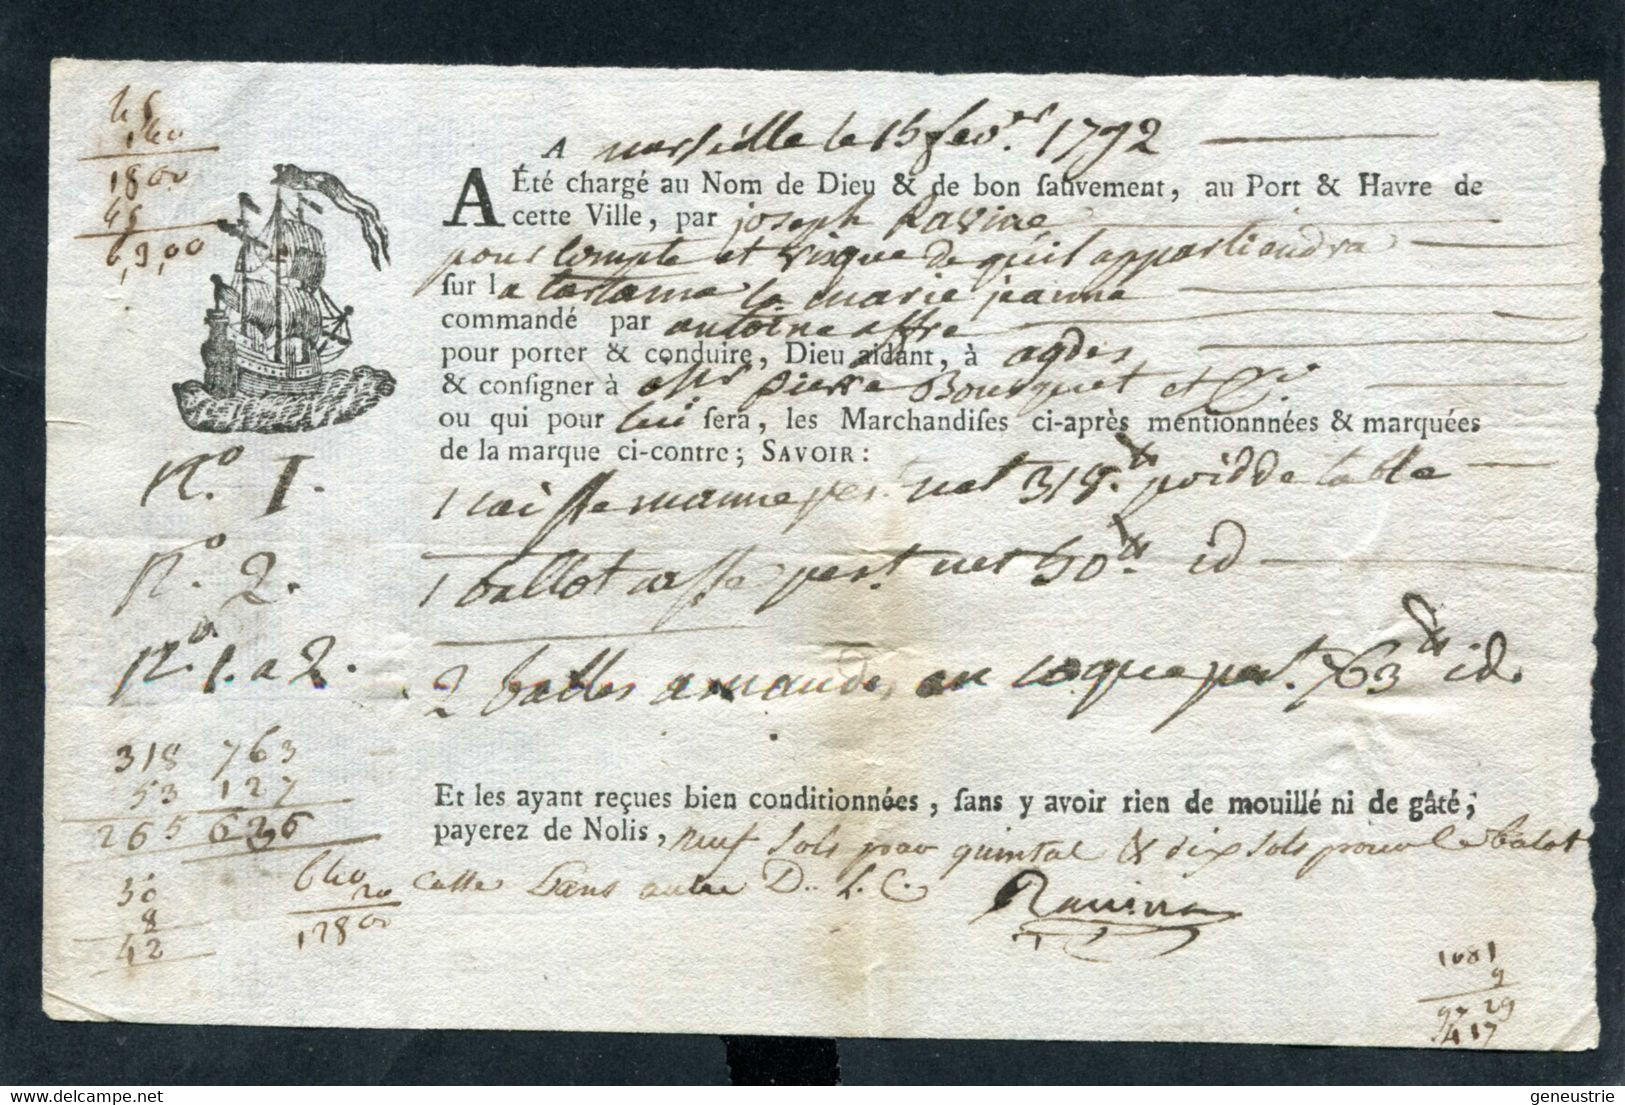 1800
45
A marseille le 15 fever. 1792
A Été chargé au Nom de Dieu & de bon ſauvement, au Port & Havre de
cette Ville, par joseph Ravine
pour compte et risque de qui il appartiendra
ſur la tartanne la marie jeanne
commandé par antoine affre
pour porter & conduire, Dieu aidant, à agdes
& conſigner à pierre Bousquet et Cie
ou qui pour lui ſera, les Marchandiſes ci-après mentionnnées & marquées
de la marque ci-contre; SAVOIR:
No. 1. 1 caisse manne pest. net 318 tt. poid de table
No. 2. 1 ballot casse pest. net 50 tt. id
No. 1. a 2. 2 balles amandes en coque pest. 763 tt id.
318 763
53 127
265 636
Et les ayant reçues bien conditionnées, ſans y avoir rien de mouillé ni de gâté;
payerez de Nolis, neuf sols par quintal & dix sols pour le balot
casse sans autre D.. L. C.
Ravine
50
8
42
640
20
12800
1081
9
97 29
417
geneustrie
delcampe.net